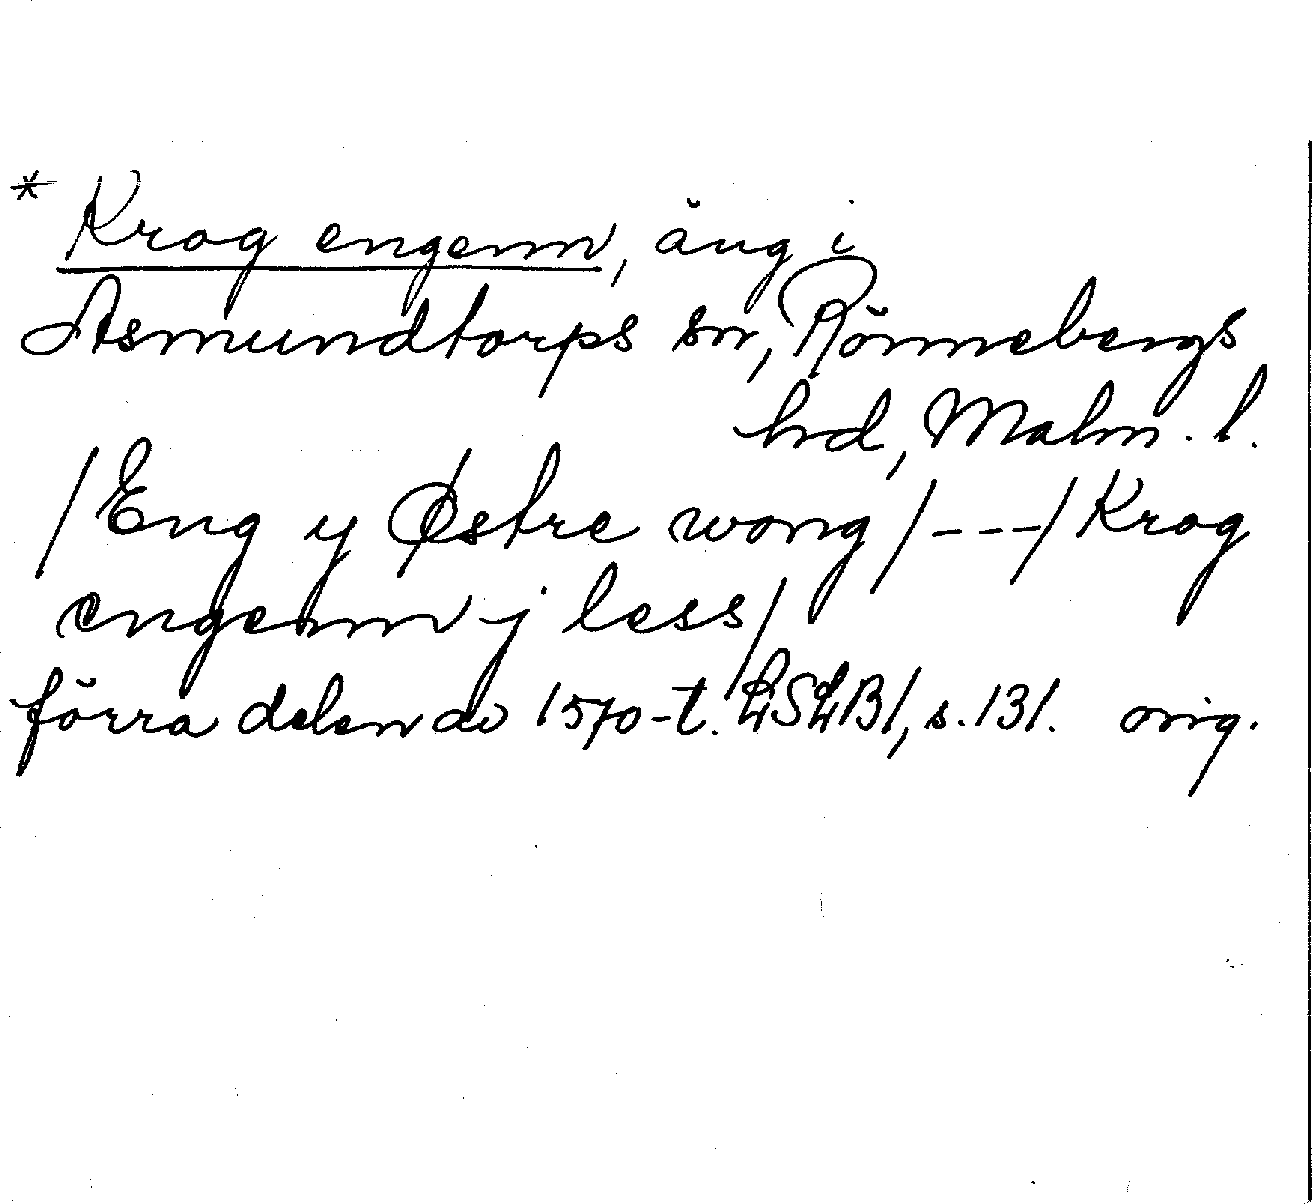 * Krog engenn, äng i
Asmundtorps sn, Rönnebergs
hrd, Malm. l.
/Eng y Østre wong/---/Krog
engenn j less/
förra delen av 1570-t. LSLB1, s. 131. orig.